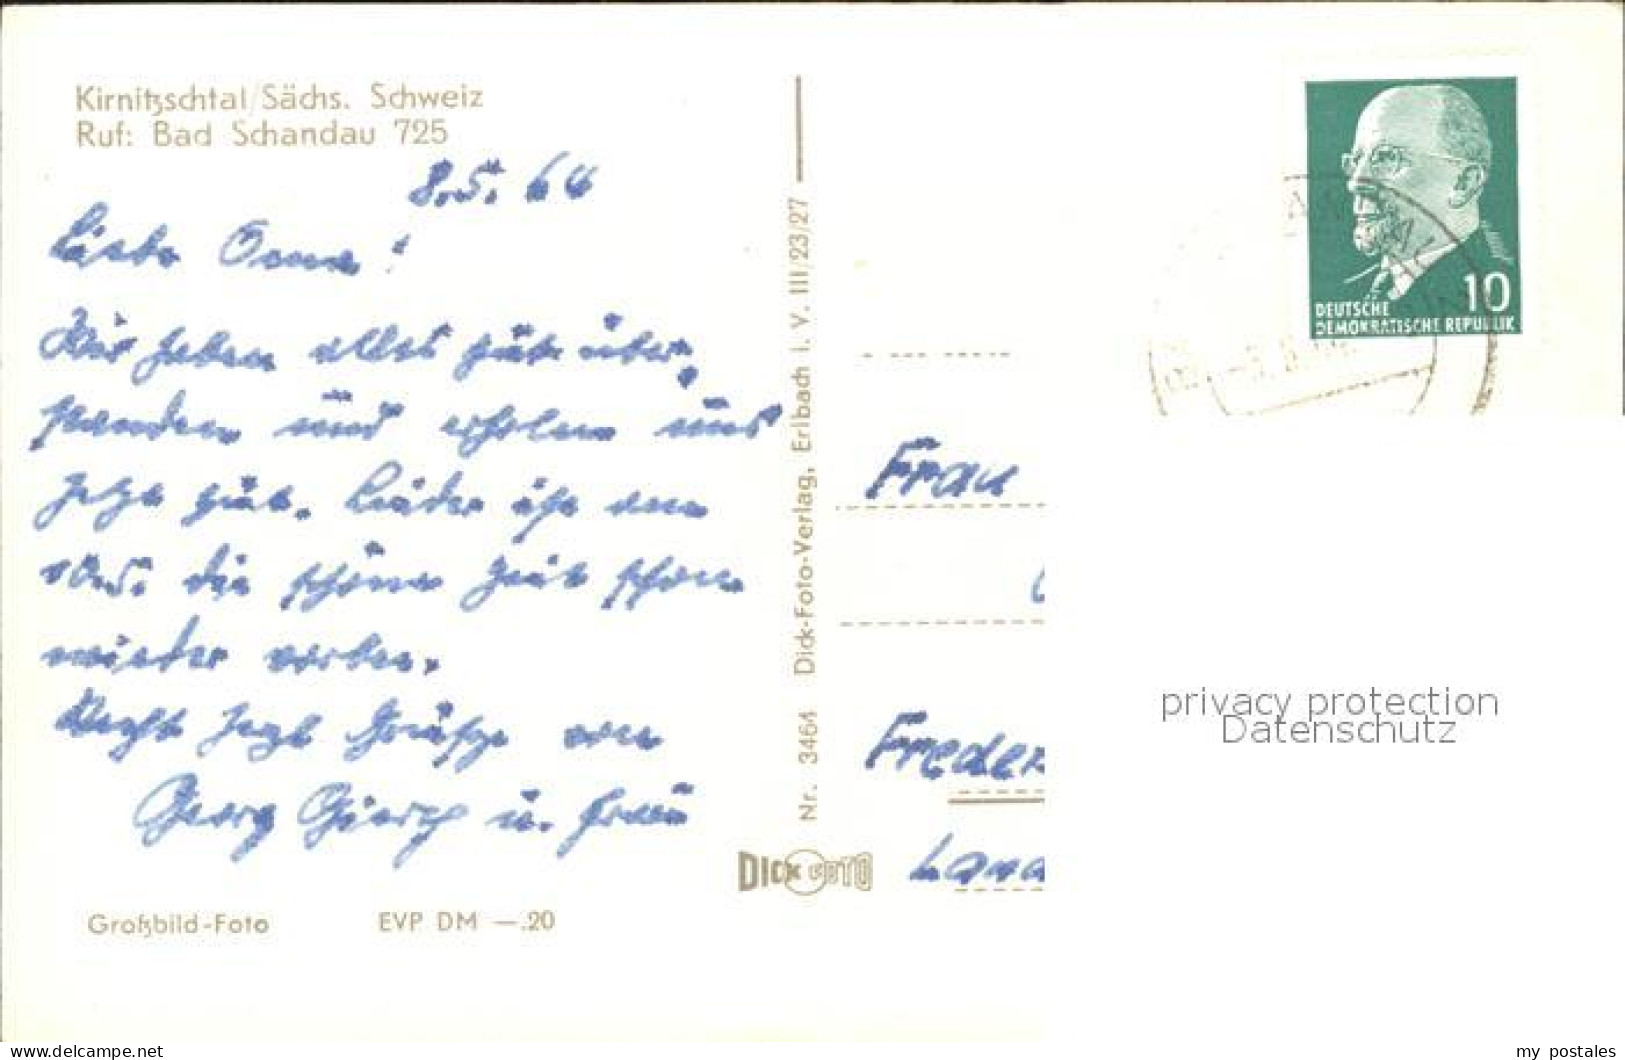 Kirnitzschtal/Sächs. Schweiz
Ruf: Bad Schandau 725
8.5. 64
Liebe Oma!
Wir haben alles gut über-
standen und erholen uns
jetzt gut. Leider ist am
die schöne Zeit schon
wieder vorbei.
Recht herzl Grüße von
Georg u. Frau
Großbild-Foto
EVP DM —.20
Nr. 3464 Dick-Foto-Verlag, Erlbach i. V. III/23/27
DICK FOTO
10
DEUTSCHE
DEMOKRATISCHE REPUBLIK
Frau
Freder
Land
privacy protection
Datenschutz
my postales
https://www.ansichtskarten-center.de/